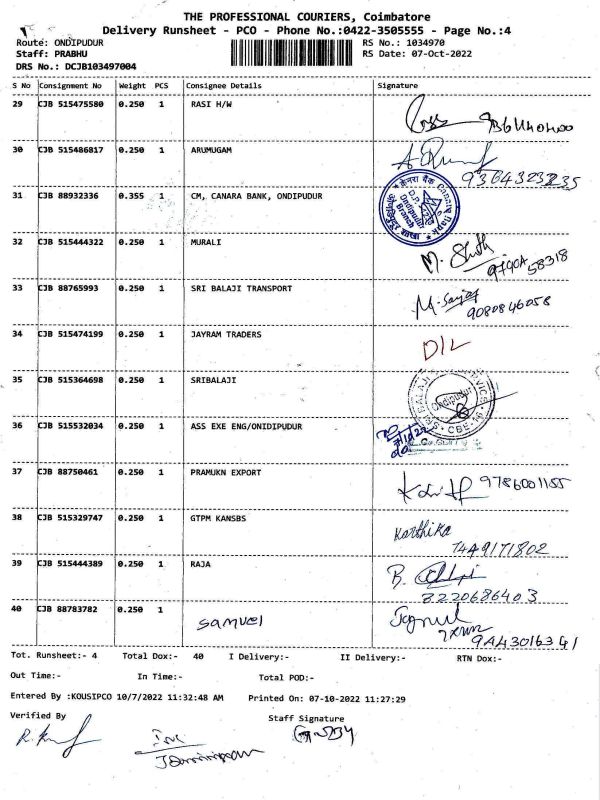 THE PROFESSIONAL COURIERS, Coimbatore
Delivery Runsheet - PCO - Phone No.:0422-3505555 - Page No.:4
Route: ONDIPUDUR RS No.: 1034970
Staff: PRABHU RS Date: 07-Oct-2022
DRS No.: DCJB103497004
S No Consignment No Weight PCS Consignee Details Signature
29 CJB 515475580 0.250 1 RASI H/W
30 CJB 515486817 0.250 1 ARUMUGAM
9364323235
31 CJB 88932336 0.355 1 CM, CANARA BANK, ONDIPUDUR
केनरा बैंक Canara Bank
D.P.
Ondipudur
Branch
शाखा
32 CJB 515444322 0.250 1 MURALI
33 CJB 88765993 0.250 1 SRI BALAJI TRANSPORT
9080846058
34 CJB 515474199 0.250 1 JAYRAM TRADERS D/L
35 CJB 515364698 0.250 1 SRIBALAJI
Ondipudur
36 CJB 515532034 0.250 1 ASS EXE ENG/ONIDIPUDUR
37 CJB 88750461 0.250 1 PRAMUKN EXPORT 9786001155
38 CJB 515329747 0.250 1 GTPM KANSBS Karthika
7449171802
39 CJB 515444389 0.250 1 RAJA
8220686403
40 CJB 88783782 0.250 1 samuel
9443016341
Tot. Runsheet:- 4 Total Dox:- 40 I Delivery:- II Delivery:- RTN Dox:-
Out Time:- In Time:- Total POD:-
Entered By :KOUSIPCO 10/7/2022 11:32:48 AM Printed On: 07-10-2022 11:27:29
Verified By Staff Signature